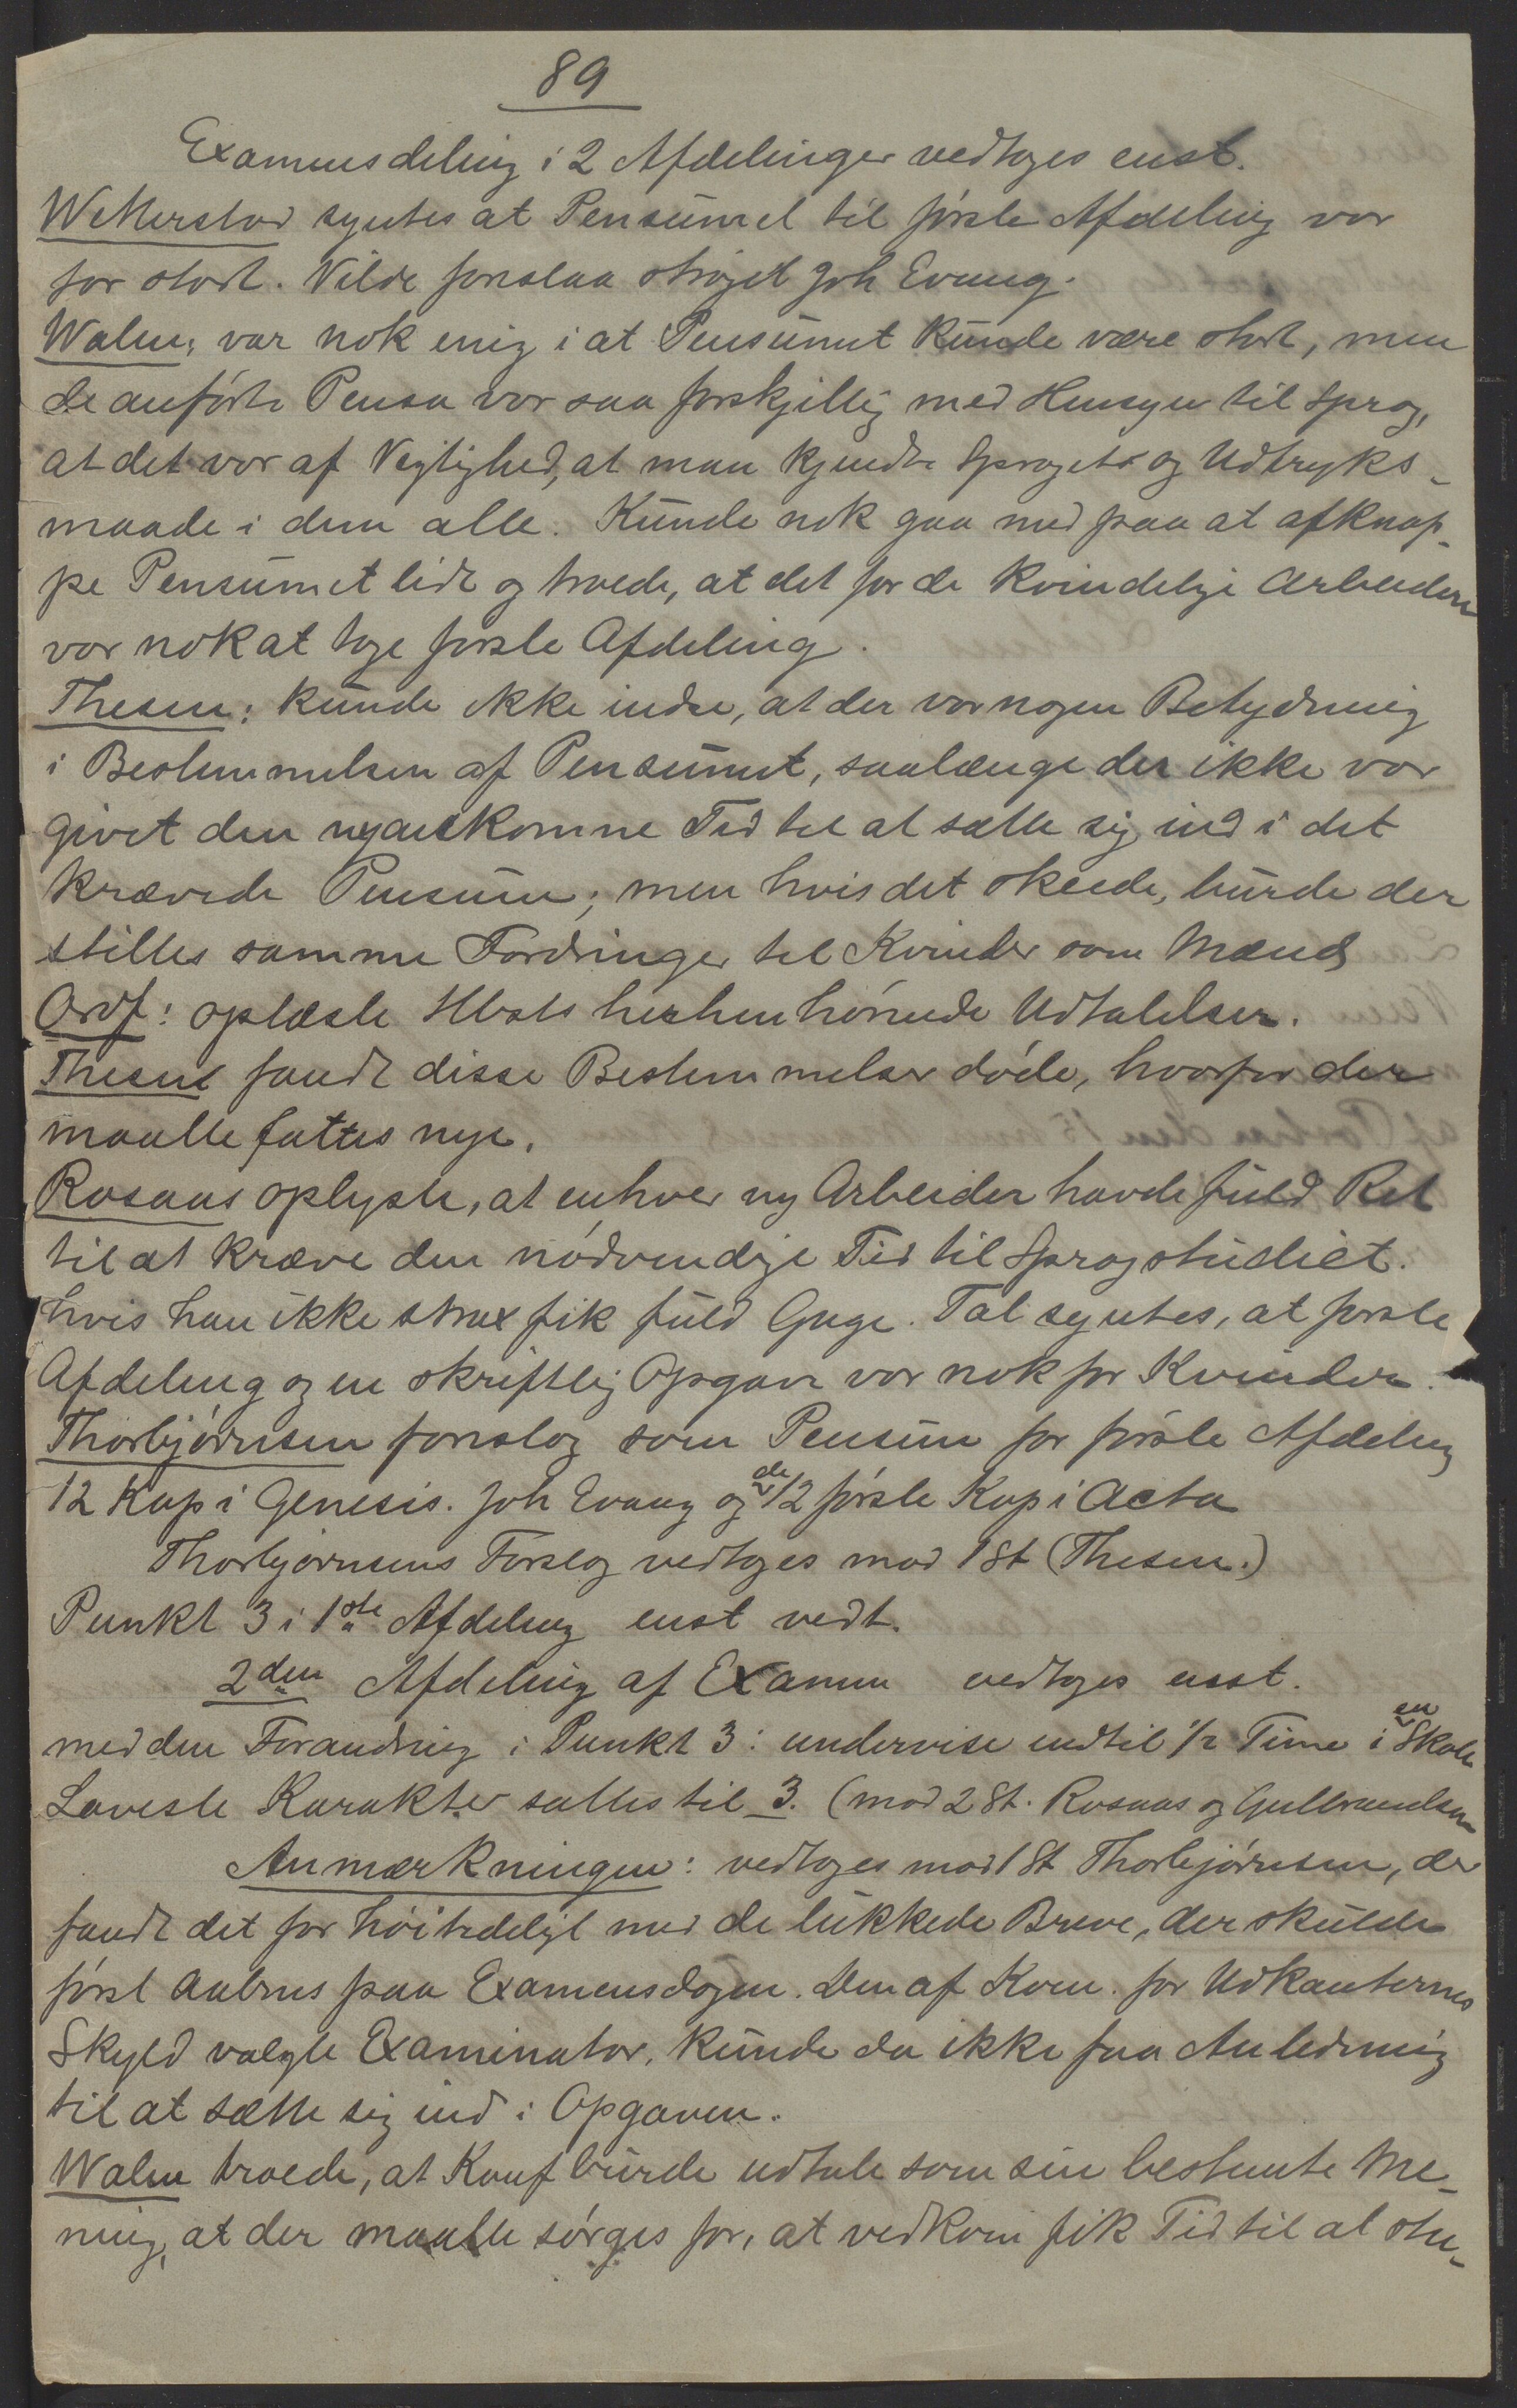 89
Examensdeling i 2 Afdelinger vedtoges enst.
Wetterstad syntes at Pensumet til første Afdeling var
for stort. Vilde foreslaa strøget Joh Evang.
Walen: var nok enig i at Pensumet kunde være stort, men
de anførte Pensa var saa forskjellig med Hensyn til Sprog,
at det var af Vigtighed, at man kjendte Sproget og Udtryks-
maade i dem alle. Kunde nok gaa med paa at afknap-
pe Pensumet lidt og troede, at det for de kvindelige Arbeidere
var nok at tage første Afdeling.
Thesen: kunde ikke indse, at der var nogen Betydning
i Bestemmelsen af Pensumet, saalænge der ikke var
givet den nyankomne Tid til at sætte sig ind i det
krævede Pensum; men hvis det skeede, burde der
stilles samme Fordringer til Kvinder som Mænd
Ordf: oplæste Hbsts herhen hørende Udtalelser.
Thesen fandt disse Bestemmelser døde, hvorfor der
maatte fattes nye.
Rosaas oplyste, at enhver ny Arbeider havde fuld Ret
til at kræve den nødvendige Tid til Sprogstudiet.
hvis han ikke strax fik fuld Gage. Tal syntes, at første
Afdeling og en skriftlig Opgave var nok for Kvinder.
Thorbjørnsen foreslog som Pensum for første Afdeling
12 Kap i Genesis. Joh Evang og de 12 første Kap i Acta
Thorbjørnsens Forslag vedtoges mod 1 St (Thesen.)
Punkt 3 i 1ste Afdeling enst vedt.
2den Afdeling af Examen vedtoges enst.
med den Forandring i Punkt 3: undervise indtil 1/2 Time i en Skole
Laveste Karakter sattes til 3. (mod 2 St. Rosaas og Gulbrandsen
Anmærkningen: vedtoges mod 1 St Thorbjørnsen, der
fandt det for høitideligt med de lukkede Breve, der skulde
først aabnes paa Examensdagen. Den af Kom. for Udkanternes
Skyld valgte Examinator, kunde da ikke faa Anledning
til at sætte sig ind i Opgaven.
Walen troede, at Konf burde udtale som sin bestemte Me-
ning, at der maatte sørges for, at vedkom fik Tid til at stu-